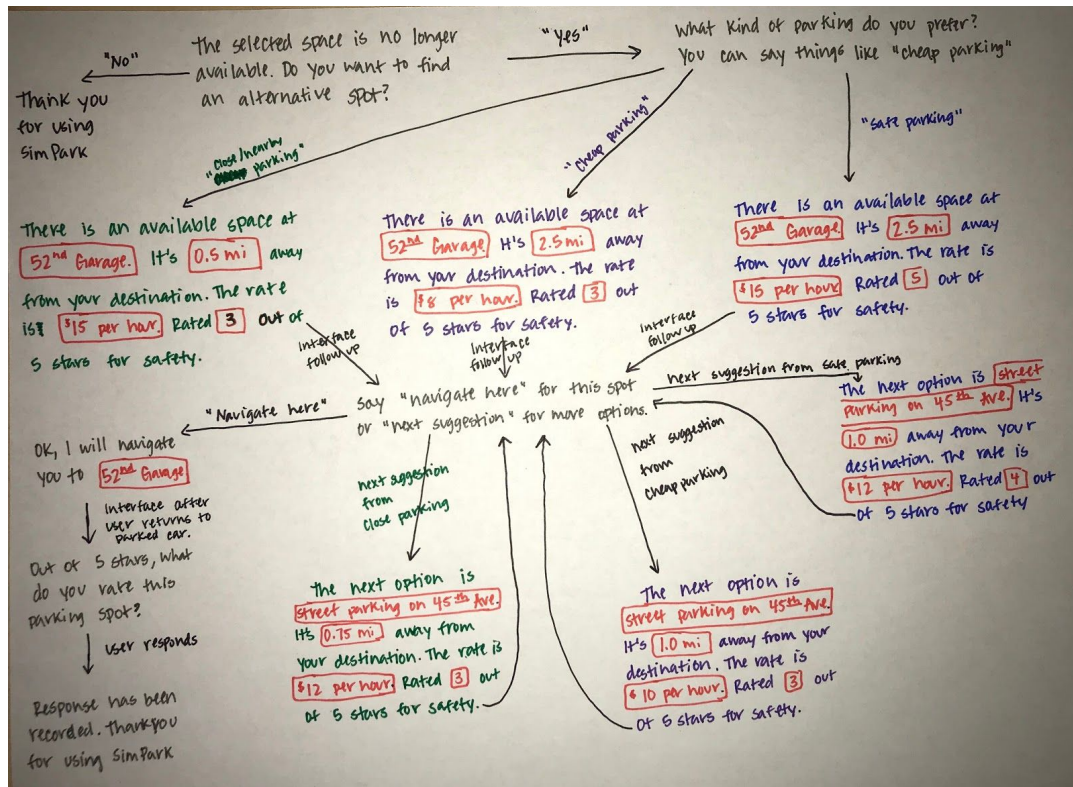 The selected space is no longer
available. Do you want to find
an alternative spot?
"No"
Thank you
for using
SimPark
"Yes"
What kind of parking do you prefer?
You can say things like "cheap parking"
"close/nearby
parking"
"Cheap parking"
"Safe parking"
There is an available space at
52nd Garage. It's 0.5 mi away
from your destination. The rate
is $15 per hour. Rated 3 out of
5 stars for safety.
There is an available space at
52nd Garage. It's 2.5 mi away
from your destination. The rate
is $8 per hour. Rated 3 out
of 5 stars for safety.
There is an available space at
52nd Garage. It's 2.5 mi away
from your destination. The rate is
$15 per hour. Rated 5 out of
5 stars for safety.
Interface
follow up
Interface
follow up
Interface
follow up
Say "navigate here" for this spot
or "next suggestion" for more options.
"Navigate here"
OK, I will navigate
you to 52nd Garage
Interface after
user returns to
parked car.
Out of 5 stars, what
do you rate this
parking spot?
user responds
Response has been
recorded. Thankyou
for using SimPark
next suggestion from safe parking
The next option is street
parking on 45th Ave. It's
1.0 mi away from your
destination. The rate is
$12 per hour. Rated 4 out
of 5 stars for safety
next suggestion
from
close parking
The next option is
street parking on 45th Ave.
It's 0.75 mi away from
your destination. The rate is
$12 per hour. Rated 3 out
of 5 stars for safety.
next suggestion
from
cheap parking
The next option is
street parking on 45th Ave.
It's 1.0 mi away from your
destination. The rate is
$10 per hour. Rated 3 out
of 5 stars for safety.